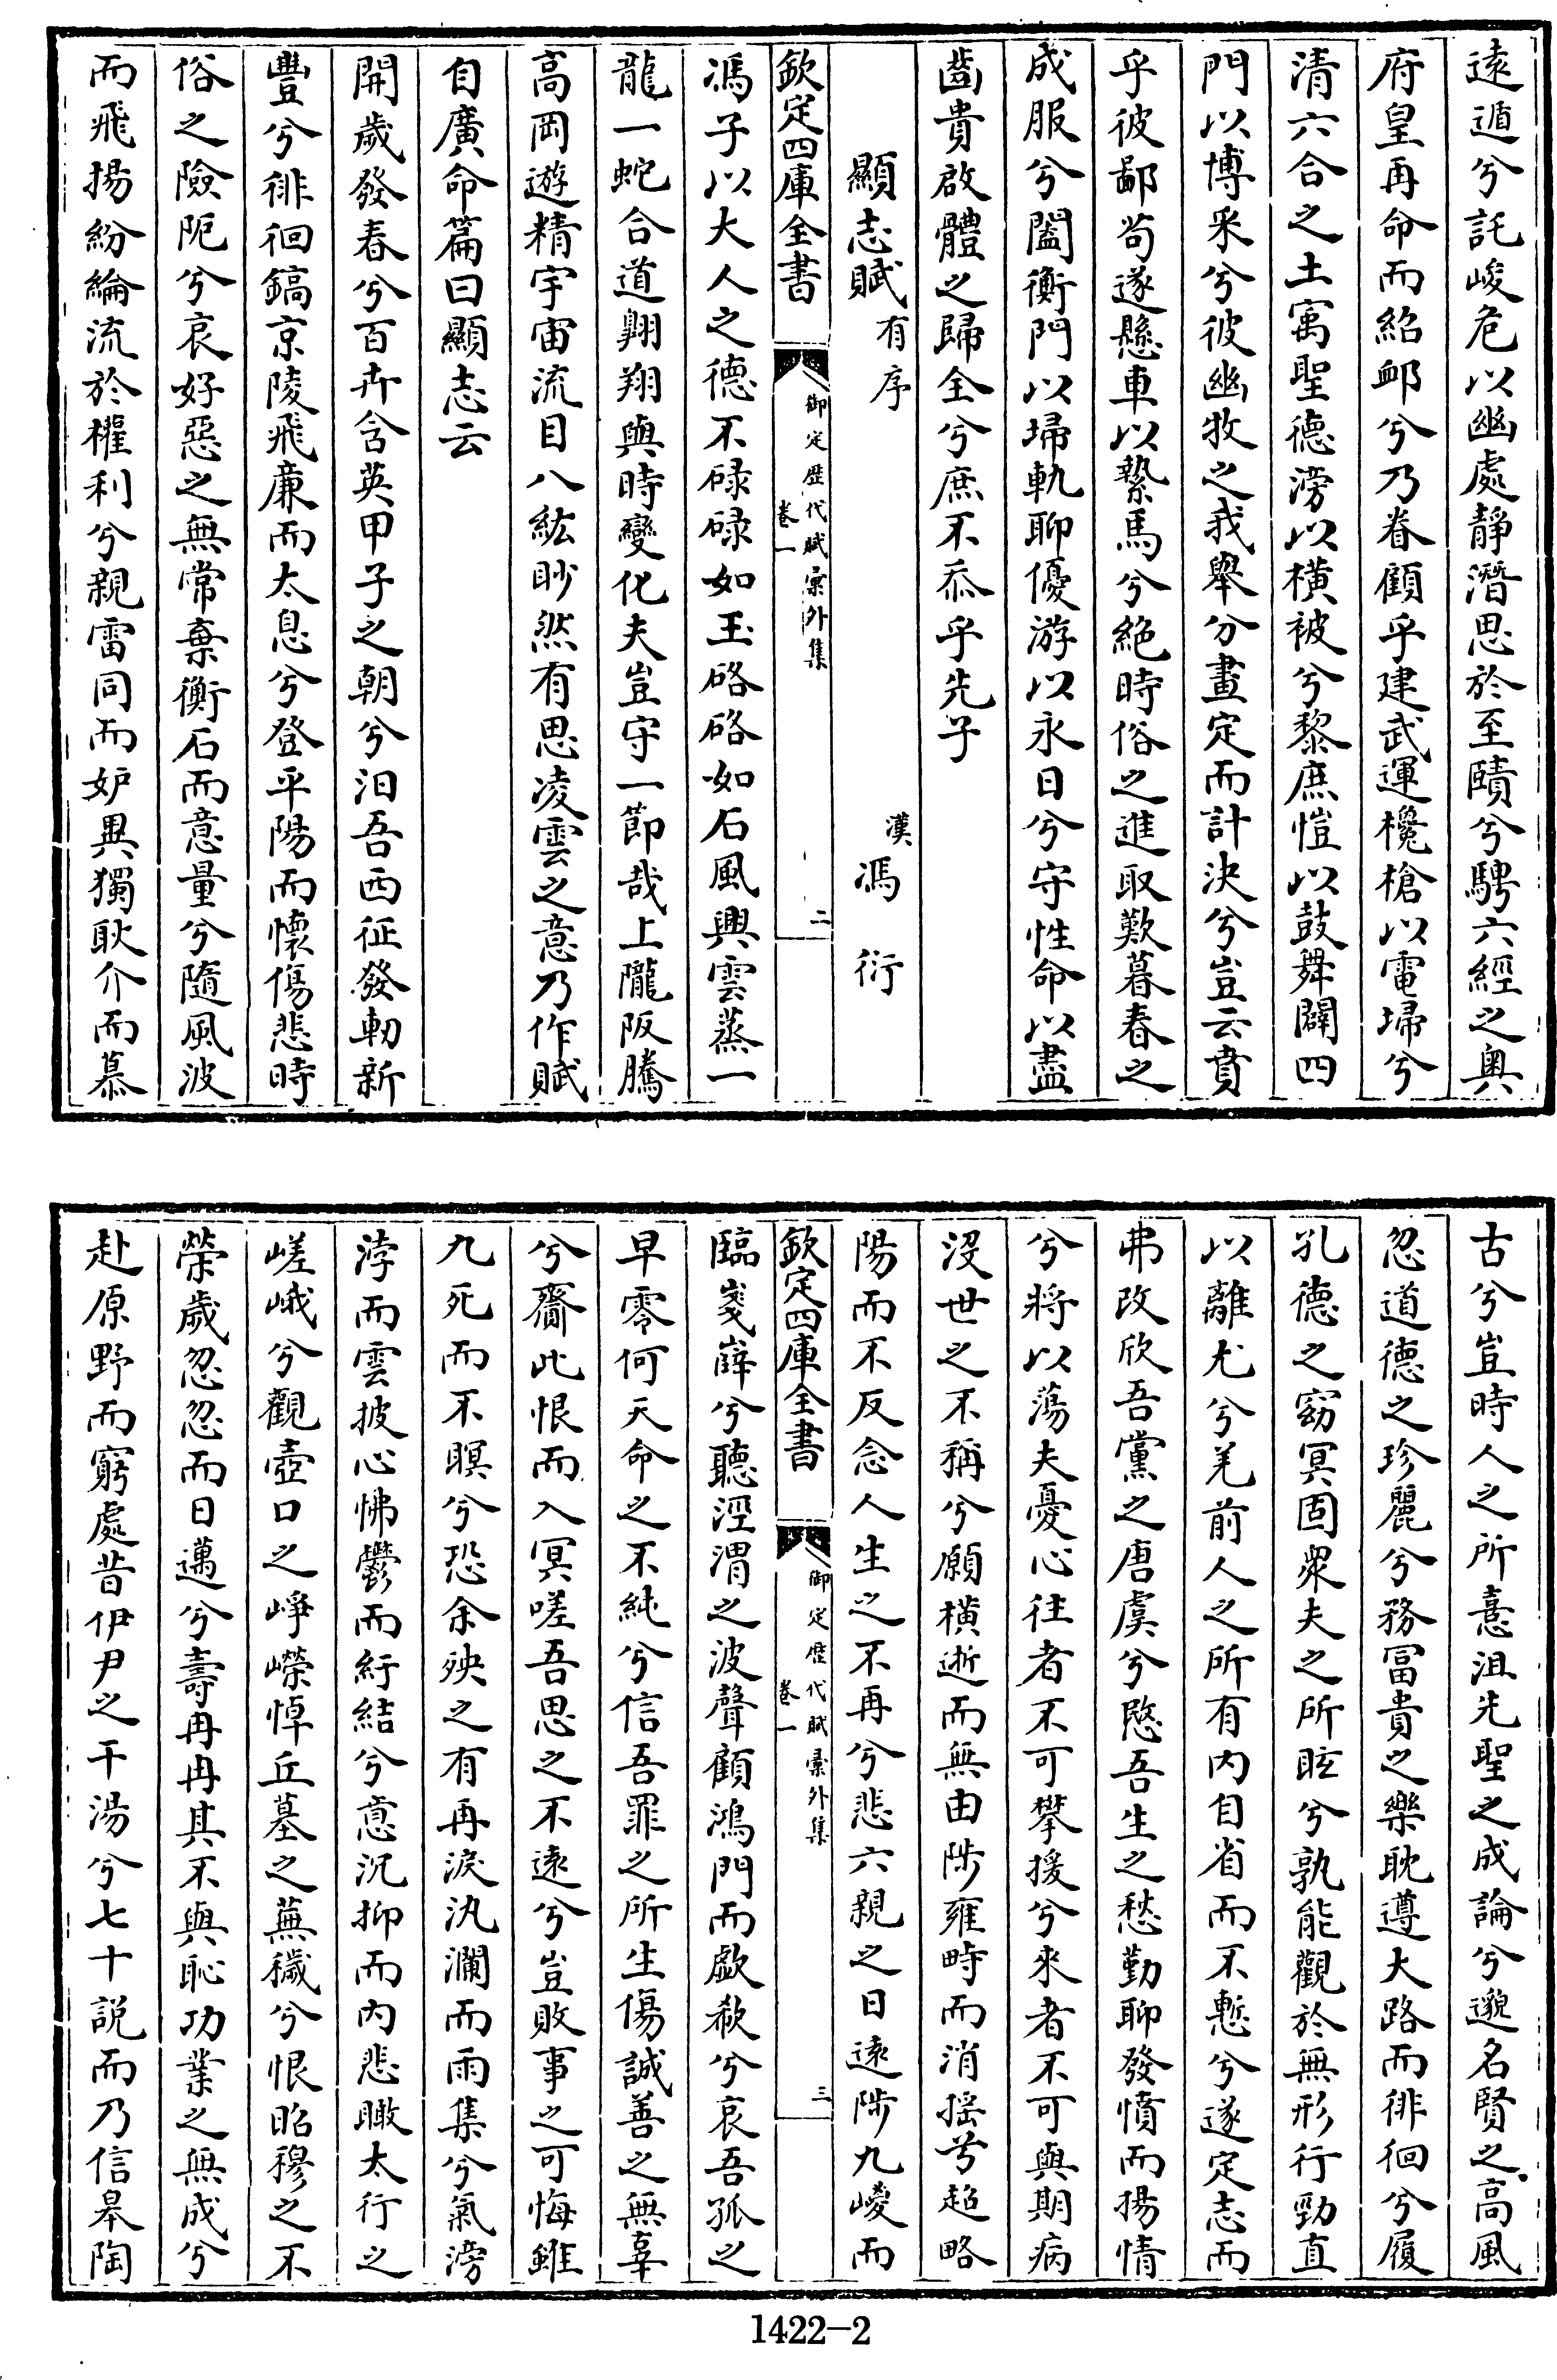 遠遁兮託峻危以幽處靜潛思於至賾兮騁六經之奧
府皇再命而紹卹兮乃眷顧乎建武運欃槍以電埽兮
清六合之土㝢聖德滂以横被兮黎庶愷以鼓舞闢四
門以博采兮彼幽牧之我舉分畫定而計決兮豈云賁
乎彼鄙茍遂懸車以縶馬兮絶時俗之進取歎暮春之
成服兮闔衡門以埽軌聊優游以永日兮守性命以盡
齒貴啟體之歸全兮庶不忝乎先子
顯志賦有序 漢馮衍
欽定四庫全書 御定歴代賦彚外集 卷一 二
馮子以大人之德不碌碌如玉硌硌如石風興雲蒸一
龍一蛇合道翺翔與時變化夫豈守一節哉上隴阪騰
高岡遊精宇宙流目八紘眇然有思凌雲之意乃作賦
自廣命篇曰顯志云
開歲發春兮百卉含英甲子之朝兮汩吾西征發軔新
豐兮徘徊鎬京陵飛廉而太息兮登平陽而懷傷悲時
俗之險阨兮哀好惡之無常棄衡石而意量兮隨風波
而飛揚紛綸流於權利兮親雷同而妒異獨耿介而慕
古兮豈時人之所憙沮先聖之成論兮邈名賢之高風
忽道德之珍麗兮務冨貴之樂耽遵大路而徘徊兮履
孔德之窈冥固衆夫之所眩兮孰能觀於無形行勁直
以離尤兮羌前人之所有内自省而不慙兮遂定志而
弗改欣吾黨之唐虞兮愍吾生之愁勤聊發憤而揚情
兮將以蕩夫憂心往者不可攀援兮來者不可與期病
沒世之不稱兮願横逝而無由陟雍畤而消揺兮超略
陽而不反念人生之不再兮悲六親之日遠陟九嵕而
欽定四庫全書 御定歴代賦彚外集 卷一 三
臨嶘嶭兮聽涇渭之波聲顧鴻門而歔欷兮哀吾孤之
早零何天命之不純兮信吾罪之所生傷誠善之無辜
兮齎此恨而入冥嗟吾思之不遠兮豈敗事之可悔雖
九死而不瞑兮恐余殃之有再淚汍瀾而雨集兮氣滂
浡而雲披心怫鬱而紆結兮意沉抑而内悲瞰太行之
嵯峨兮觀壺口之崢嶸悼丘墓之蕪穢兮恨昭穆之不
榮歲忽忽而日邁兮壽冉冉其不與恥功業之無成兮
赴原野而窮處昔伊尹之干湯兮七十説而乃信臯陶
1422-2